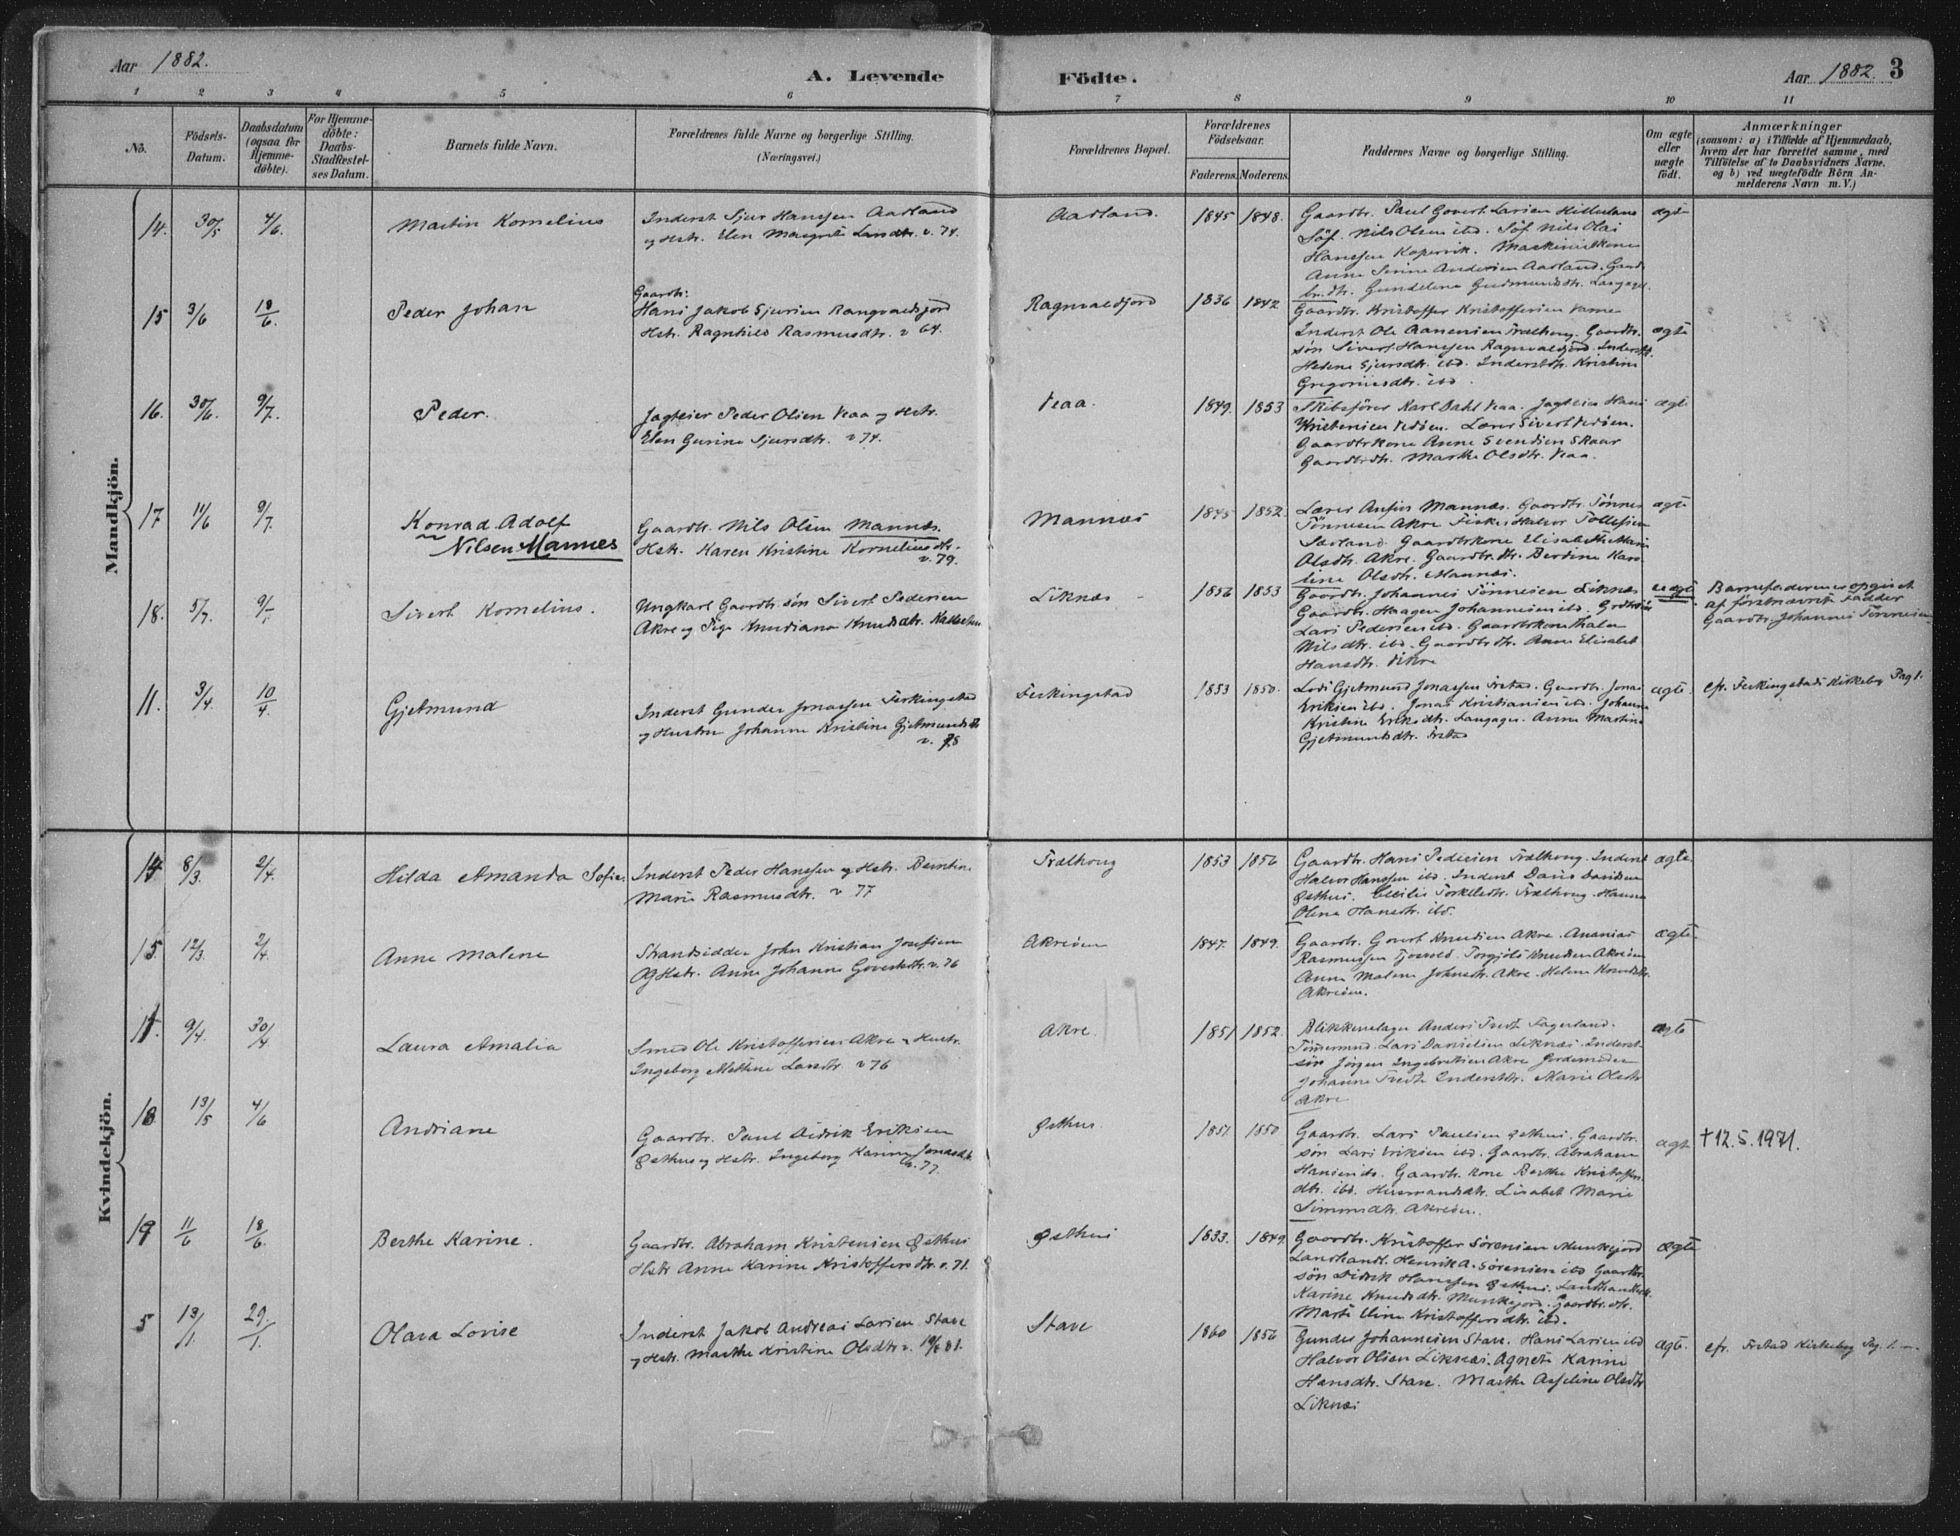 Aar 1882.
A. Levende Födte.
Aar 1882. 3
1 2 3 4 5 6 7 8 9 10 11
No.
Födsels-Datum.
Daabsdatum (ogsaa for Hjemmedöbte).
For Hjemmedöbte: Daabs-Stadfæstelses Datum.
Barnets fulde Navn.
Forældrenes fulde Navne og borgerlige Stilling.
(Næringsvei.)
Forældrenes Bopæl.
Forældrenes Födselsaar.
Faderens. Moderens.
Faddernes Navne og borgerlige Stilling.
Om ægte eller uægte födt.
Anmærkninger
(saasom: a) i Tilfælde af Hjemmedaab,
hvem der har forrettet samme, med
Tilföielse af to Daabsvidners Navne,
og b) ved uægtefödte Börn An-
melderens Navn m. V.)
Mandkjön.
14. 30/5 4/6. Martin Kornelius
Inderst Sjur Hanssen Aarland
og Hstr. Elen Margrete Larsdtr. v. 74.
Aarland. 1845 1848.
Gaardbr. Paul Govert Larsen Hilleland
Söf. Nils Olsen ibd. Söf. Nils Olai
Hanssen Kopervik. Maskinistkone
Anne Serine Andersen Aarland. Gaard-
br.dtr. Gundelena Gudmundsdtr. Langager.
ægte
15 3/6 18/6. Peder Johan
Gaardbr.
Hans Jakob Sjursen Rangvaldsfjord
Hstr. Ragnhild Rasmusdtr. v 64.
Ragnvaldfjord 1836 1842
Gaardbr. Kristoffer Kristoffersen
Inderst Ole Aanensen Trælhoug. Gaardbr.
sön Sivert Hanssen Ragnvaldsfjord. Inderstdtr.
Helene Sjursdtr. ibd. Inderstdtr. Kristine
Gregoriusdtr. ibd.
ægte
16. 30/6. 9/7. Peder.
Jagteier Peder Olsen Veaa og Hstr.
Elen Gurine Sjursdtr. v 74.
Veaa. 1849. 1853
Skibsförer Karl Dahl Veaa. Jagteier Hans
Kristensen Vedöen. Lærer Sivert Vedöen.
Gaardbrkone Anne Svendsen Skaar
Gaardbr.dtr. Marthe Olsdtr. Veaa.
ægte
17. 11/6 9/7. Konrad Adolf
Nilsen Mannes
Gaardbr. Nils Olsen Mannæs.
Hstr. Karen Kristine Korneliusdtr.
v. 79.
Mannæs 1845 1852.
Lærer Anfin Mannæs. Gaardbr. Tönnes
Tönnesen Akre Fisker Halvor Tollefsen
Sæland. Gaardbrkone Elisabeth Marie
Olsdtr. Akre. Gaardbr.dtr. Berdine Karo-
line Olsdtr. Mannæs.
ægte
18. 5/7. 9/7. Sivert Kornelius.
Ungkarl Gaardbr.sön Sivert Pedersen
Akre og Pige Knudiana Knudsdtr.
Liknæs 1856 1853
Gaardbr. Johannes Tönnesen Liknæs
Gaardbr. Haagen Johannesen ibd.
Lars Pedersen ibd. Gaardbrkone Malen
Nilsdtr. ibd. Gaardbr.dtr. Anne Elisabet
Hansdtr. Akre
uægte
Barnefaderen opgivet
af förstnævnte Fadder
Gaardbr. Johannes Tönnesen
11. 3/4. 10/4. Gjetmund
Inderst Gunder Jonassen Ferkingstad
og Hustru Johanne Kristine Gjetmundsdtr.
v. 78
Ferkingstad 1853 1850.
Lods Gjetmund Jonassen Frstad. Gaardbr. Jonas
Eriksen ibd. Jonas Kristiansen ibd. Johanne
Kristine Eriksdtr. Langager. Anne Martine
Gjetmundsdtr. Frstad
ægte.
cfr. Ferkingstads Kirkebog Pag 1.
Kvindekjön.
14 8/3. 2/4. Hilda Amanda Sofie.
Inderst Peder Hanssen og Hstr. Berntine
Marie Rasmusdtr. v 77
Trælhoug 1853 1856
Gaardbr. Hans Pedersen Trælhoug. Inderst
Halvor Hanssen ibd. Inderst David Davidsen
Østhus. Cecilie Torkelsdtr. Trælhoug. Hanna
Olena Hansdtr. ibd.
ægte
15 12/3. 2/4. Anne Malene
Strandsidder John Kristian Josefsen
og Hstr. Anne Johanne Govertsdtr. v. 76
Akreöen 1847. 1849.
Gaardbr. Govert Knudsen Akre. Ananias
Rasmussen Tjosvold. Torgils Knudsen Akreöen
Anna Malena Johnsdtr. Akre. Helene Knudsdtr.
Akreöen.
ægte.
17. 9/4. 30/4 Laura Amalia
Smed Ole Kristoffersen Akre og Hustr.
Ingeborg Mettine Larsdtr v 76
Akre. 1851 1852.
Blikkenslager Anders Tvedt Fagerland.
Tömmermand Lars Danielsen Liknæs. Inderst-
sön Jörgen Ingebretsen Akre Jordemoder
Johanne Tvedt Inderstdtr. Marie Olsdtr
Akre
ægte
18 13/5 4/6 Andriane
Gaardbr. Paul Didrik Eriksen
Østhus og Hstr. Ingeborg Karine Jonasdtr.
v. 77
Østhus. 1851. 1850
Gaardbr. Lars Paulsen Østhus. Gaardbr.
sön Lars Eriksen ibd. Gaardbr. Abraham
Hansen ibd. Gaardbr. kone Berthe Kristoffers
dtr. ibd. Husmandsdtr. Lisabet Marie
Simonsdtr. Akreöen.
ægte
† 12.5.1971.
19 11/6 18/6. Berthe Karine.
Gaardbr. Abraham Kristensen Østhus
Hstr Anne Karine Kristoffersdtr. v. 71.
Østhus 1833. 1849.
Gaardbr. Kristoffer Sörensen Munkejord
Landhandl. Henrik A. Sörensen ibd Gaardbr.
sön Didrik Hanssen Østhus. Landhandlers.
Karine Knudsdtr. Munkejord. Gaardbr.dtr.
Marte Eline Kristoffersdtr ibd.
ægte
5 13/1. 29/1. Olava Lovise
Inderst Jakob Andreas Larsen Stave
og Hstr. Marthe Kristine Olsdtr v. 81.
Stave 1860 1856
Gunder Johannesen Stave. Hans Larsen ibd
Halvor Olsen Liknæs. Agnete Karine
Hansdtr. Stave. Marthe Aseline Olsdtr
Liknæs
ægte.
cfr. Frstad Kirkebog Pag. 1.